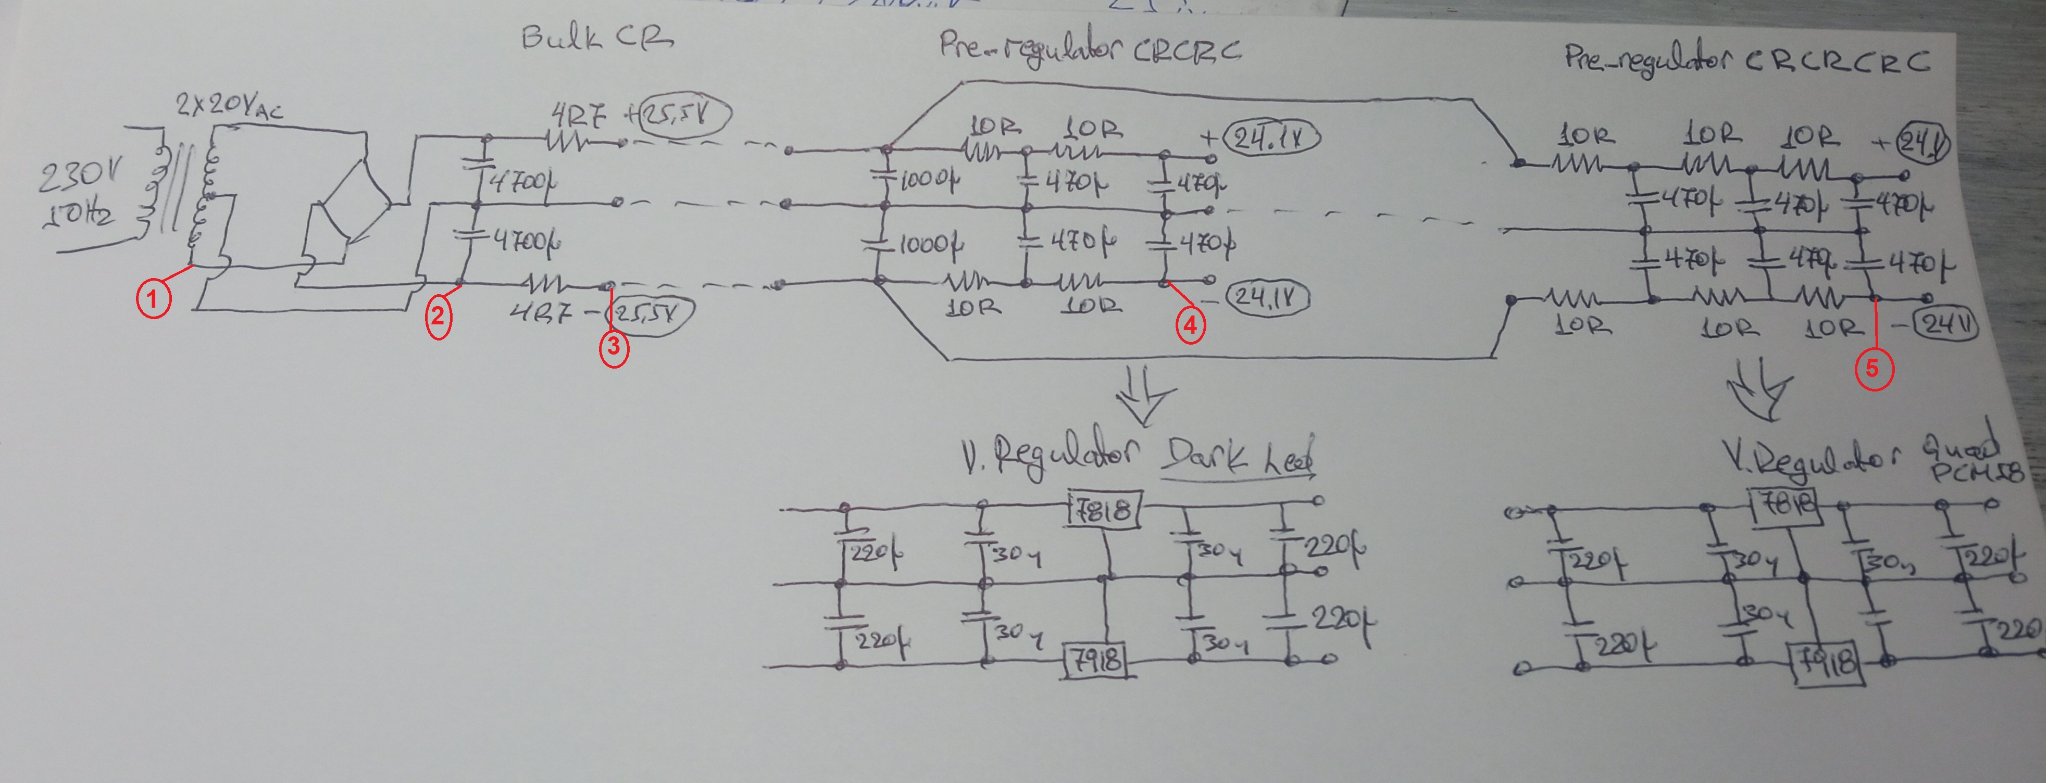 Bulk CR
Pre-regulator CRCRC
Pre-regulator CRCRCRC
2x20VAC
230V
50Hz
4R7 +25,5V
4700µ
4700µ
4R7 -25,5V
10R 10R
+24.1V
1000µ 470µ 470µ
1000µ 470µ 470µ
10R 10R
-24.1V
10R 10R 10R
+24V
470µ 470µ 470µ
470µ 470µ 470µ
10R 10R 10R
-24V
1
2
3
4
5
V. Regulator Dark Led
7818
220µ 30µ 30µ 220µ
220µ 30µ 30µ 220µ
7918
V. Regulator Quad
PCM58
7818
220µ 30µ 30µ 220µ
220µ 30µ 220
7918